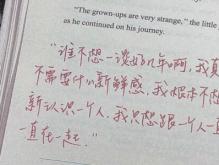 “The grown-ups are very strange,” the little
as he continued on his journey.
“谁不想一谈好几年啊,我真
不需要什么新鲜感,我根本不想
新认识一个人,我只想跟一个人一直
一直在一起。”